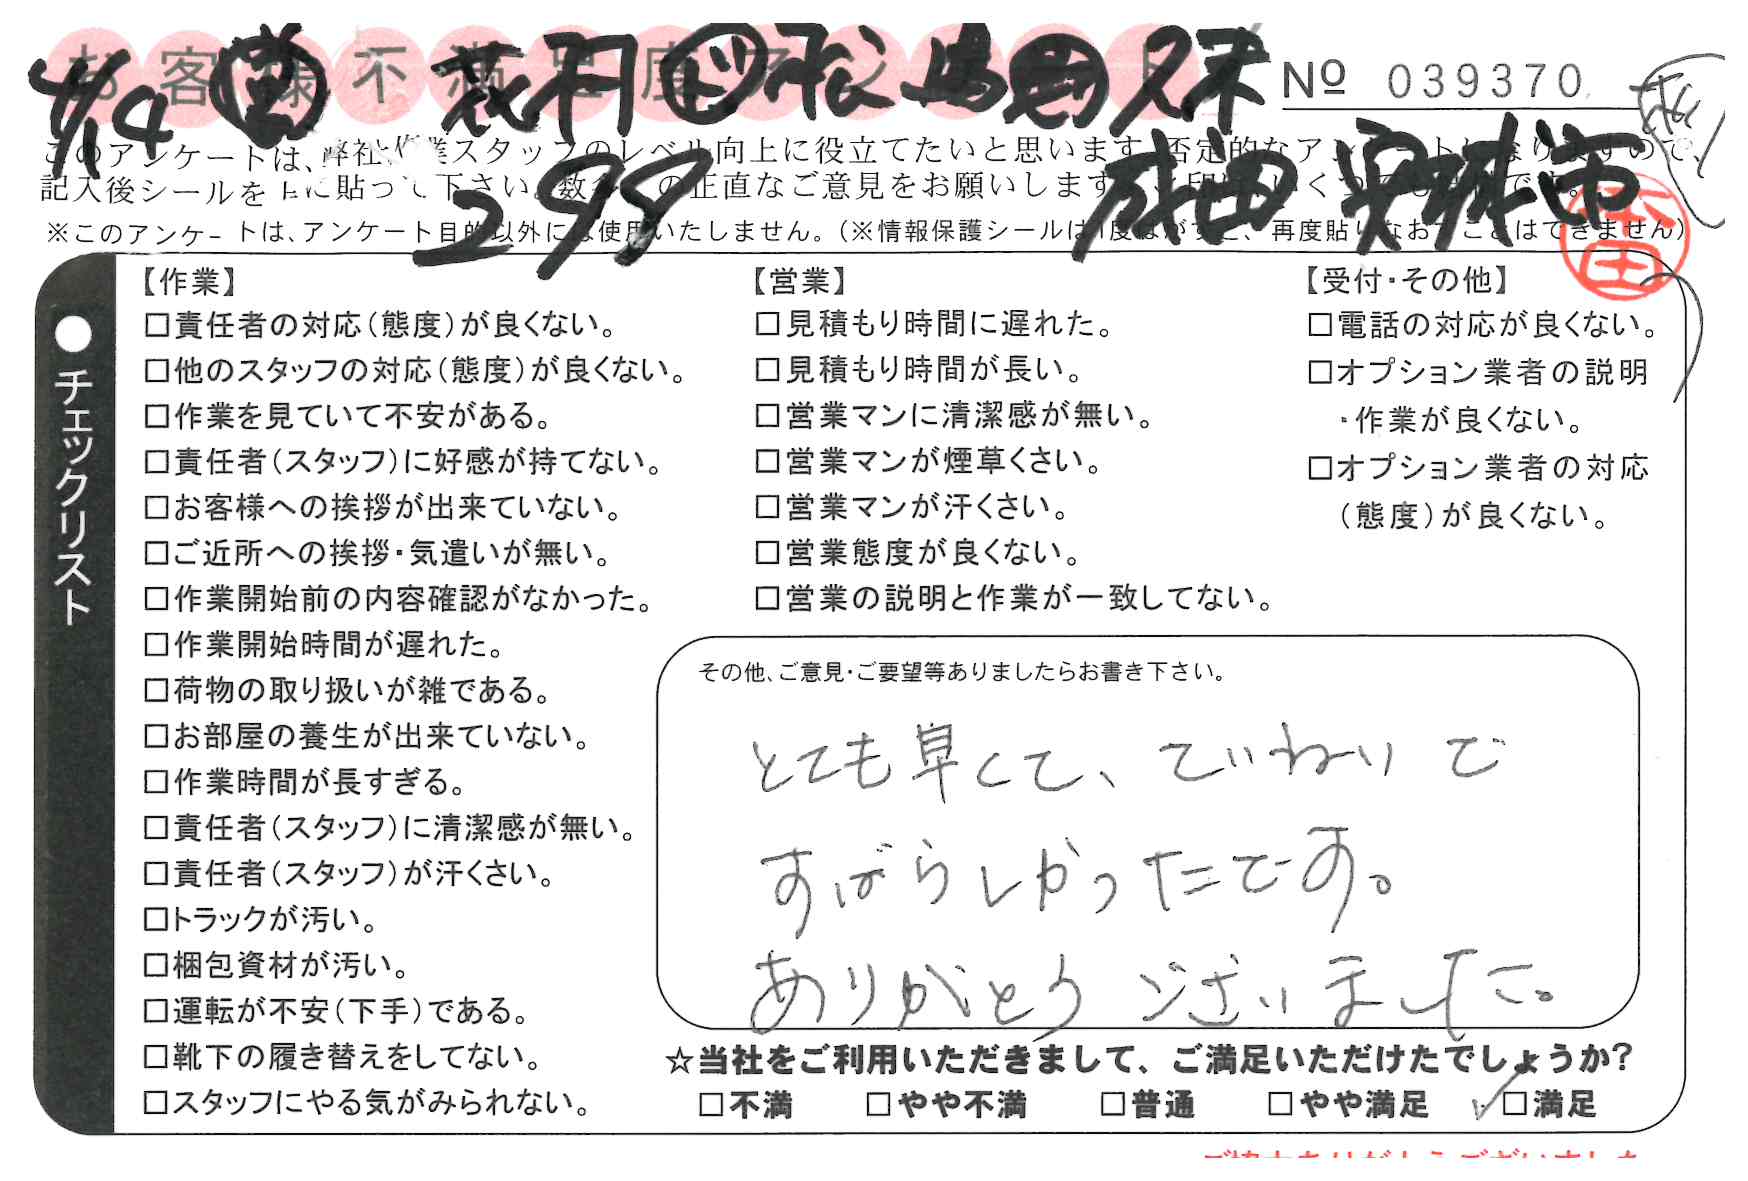 お客様不満足度アンケート
4/14
299
No 039370
このアンケートは、弊社作業スタッフのレベル向上に役立てたいと思います。否定的なアンケートになりますので、
記入後シールを 上に貼って下さい。数多くの正直なご意見をお願いします。
成田 安城市
※このアンケートは、アンケート目的以外には使用いたしません。(※情報保護シールは1度はがすと、再度貼りなおすことはできません)
●チェックリスト
【作業】
□責任者の対応(態度)が良くない。
□他のスタッフの対応(態度)が良くない。
□作業を見ていて不安がある。
□責任者(スタッフ)に好感が持てない。
□お客様への挨拶が出来ていない。
□ご近所への挨拶・気遣いが無い。
□作業開始前の内容確認がなかった。
□作業開始時間が遅れた。
□荷物の取り扱いが雑である。
□お部屋の養生が出来ていない。
□作業時間が長すぎる。
□責任者(スタッフ)に清潔感が無い。
□責任者(スタッフ)が汗くさい。
□トラックが汚い。
□梱包資材が汚い。
□運転が不安(下手)である。
□靴下の履き替えをしてない。
□スタッフにやる気がみられない。
【営業】
□見積もり時間に遅れた。
□見積もり時間が長い。
□営業マンに清潔感が無い。
□営業マンが煙草くさい。
□営業マンが汗くさい。
□営業態度が良くない。
□営業の説明と作業が一致してない。
【受付・その他】
□電話の対応が良くない。
□オプション業者の説明
・作業が良くない。
□オプション業者の対応
(態度)が良くない。
その他、ご意見・ご要望等ありましたらお書き下さい。
とても早くて、ていねいで
すばらしかったです。
ありがとうございました。
☆当社をご利用いただきまして、ご満足いただけたでしょうか?
□不満 □やや不満 □普通 □やや満足 □満足
ご協力ありがとうございました